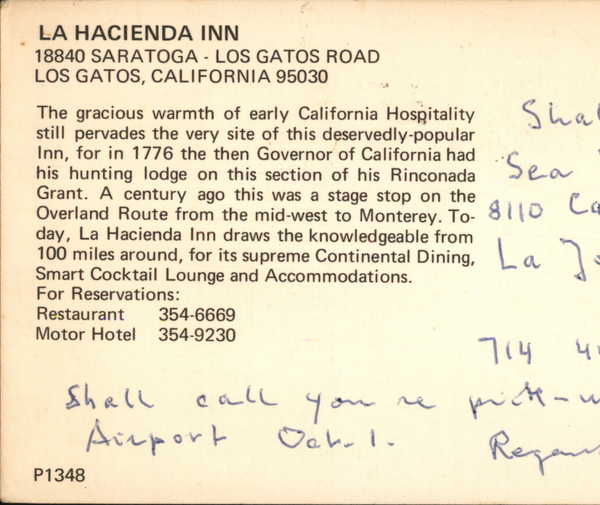 LA HACIENDA INN
18840 SARATOGA - LOS GATOS ROAD
LOS GATOS, CALIFORNIA 95030
The gracious warmth of early California Hospitality
still pervades the very site of this deservedly-popular
Inn, for in 1776 the then Governor of California had
his hunting lodge on this section of his Rinconada
Grant. A century ago this was a stage stop on the
Overland Route from the mid-west to Monterey. To-
day, La Hacienda Inn draws the knowledgeable from
100 miles around, for its supreme Continental Dining,
Smart Cocktail Lounge and Accommodations.
For Reservations:
Restaurant 354-6669
Motor Hotel 354-9230
Sea
8110
La
714
Shall call you re
Airport Oct. 1.
P1348